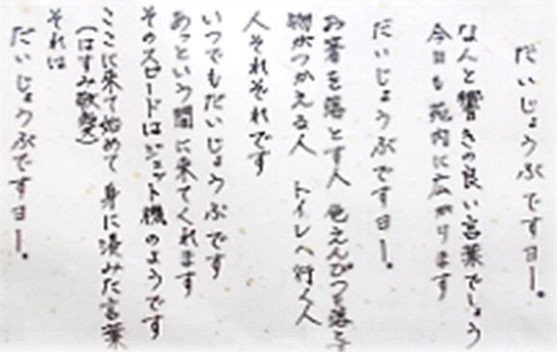 だいじょうぶですヨー。
なんと響きの良い言葉でしょう
今日も苑内に広がります
だいじょうぶですヨー。
お箸を落とす人 色えんぴつを落とす
物がつかえる人 トイレへ行く人
人それぞれです
いつでもだいじょうぶです
あっという間に来てくれます
そのスピードはジェット機のようです
ここに来て始めて身に浸みた言葉
(はすみ敬愛)
それは
だいじょうぶですヨー。